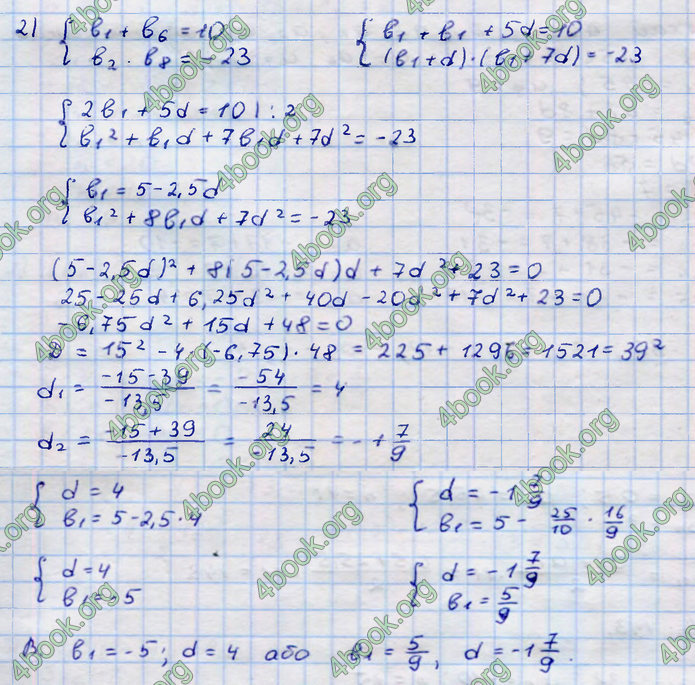 2) { b₁ + b₆ = 10 { b₁ + b₁ + 5d = 10
{ b₂ · b₈ = -23 { (b₁+d)·(b₁+7d) = -23
{ 2b₁ + 5d = 10 | : 2
{ b₁² + b₁d + 7b₁d + 7d² = -23
{ b₁ = 5 - 2,5d
{ b₁² + 8b₁d + 7d² = -23
(5 - 2,5d)² + 8(5 - 2,5d)d + 7d² + 23 = 0
25 - 25d + 6,25d² + 40d - 20d² + 7d² + 23 = 0
-6,75d² + 15d + 48 = 0
D = 15² - 4·(-6,75)·48 = 225 + 1296 = 1521 = 39²
d₁ = (-15-39)/(-13,5) = (-54)/(-13,5) = 4
d₂ = (-15+39)/(-13,5) = 24/(-13,5) = -1 7/9
{ d = 4 { d = -1 7/9
{ b₁ = 5 - 2,5·4 { b₁ = 5 - 25/10 · 16/9
{ d = 4 { d = -1 7/9
{ b₁ = -5 { b₁ = 5/9
В b₁ = -5; d = 4 або b₁ = 5/9, d = -1 7/9.
4book.org